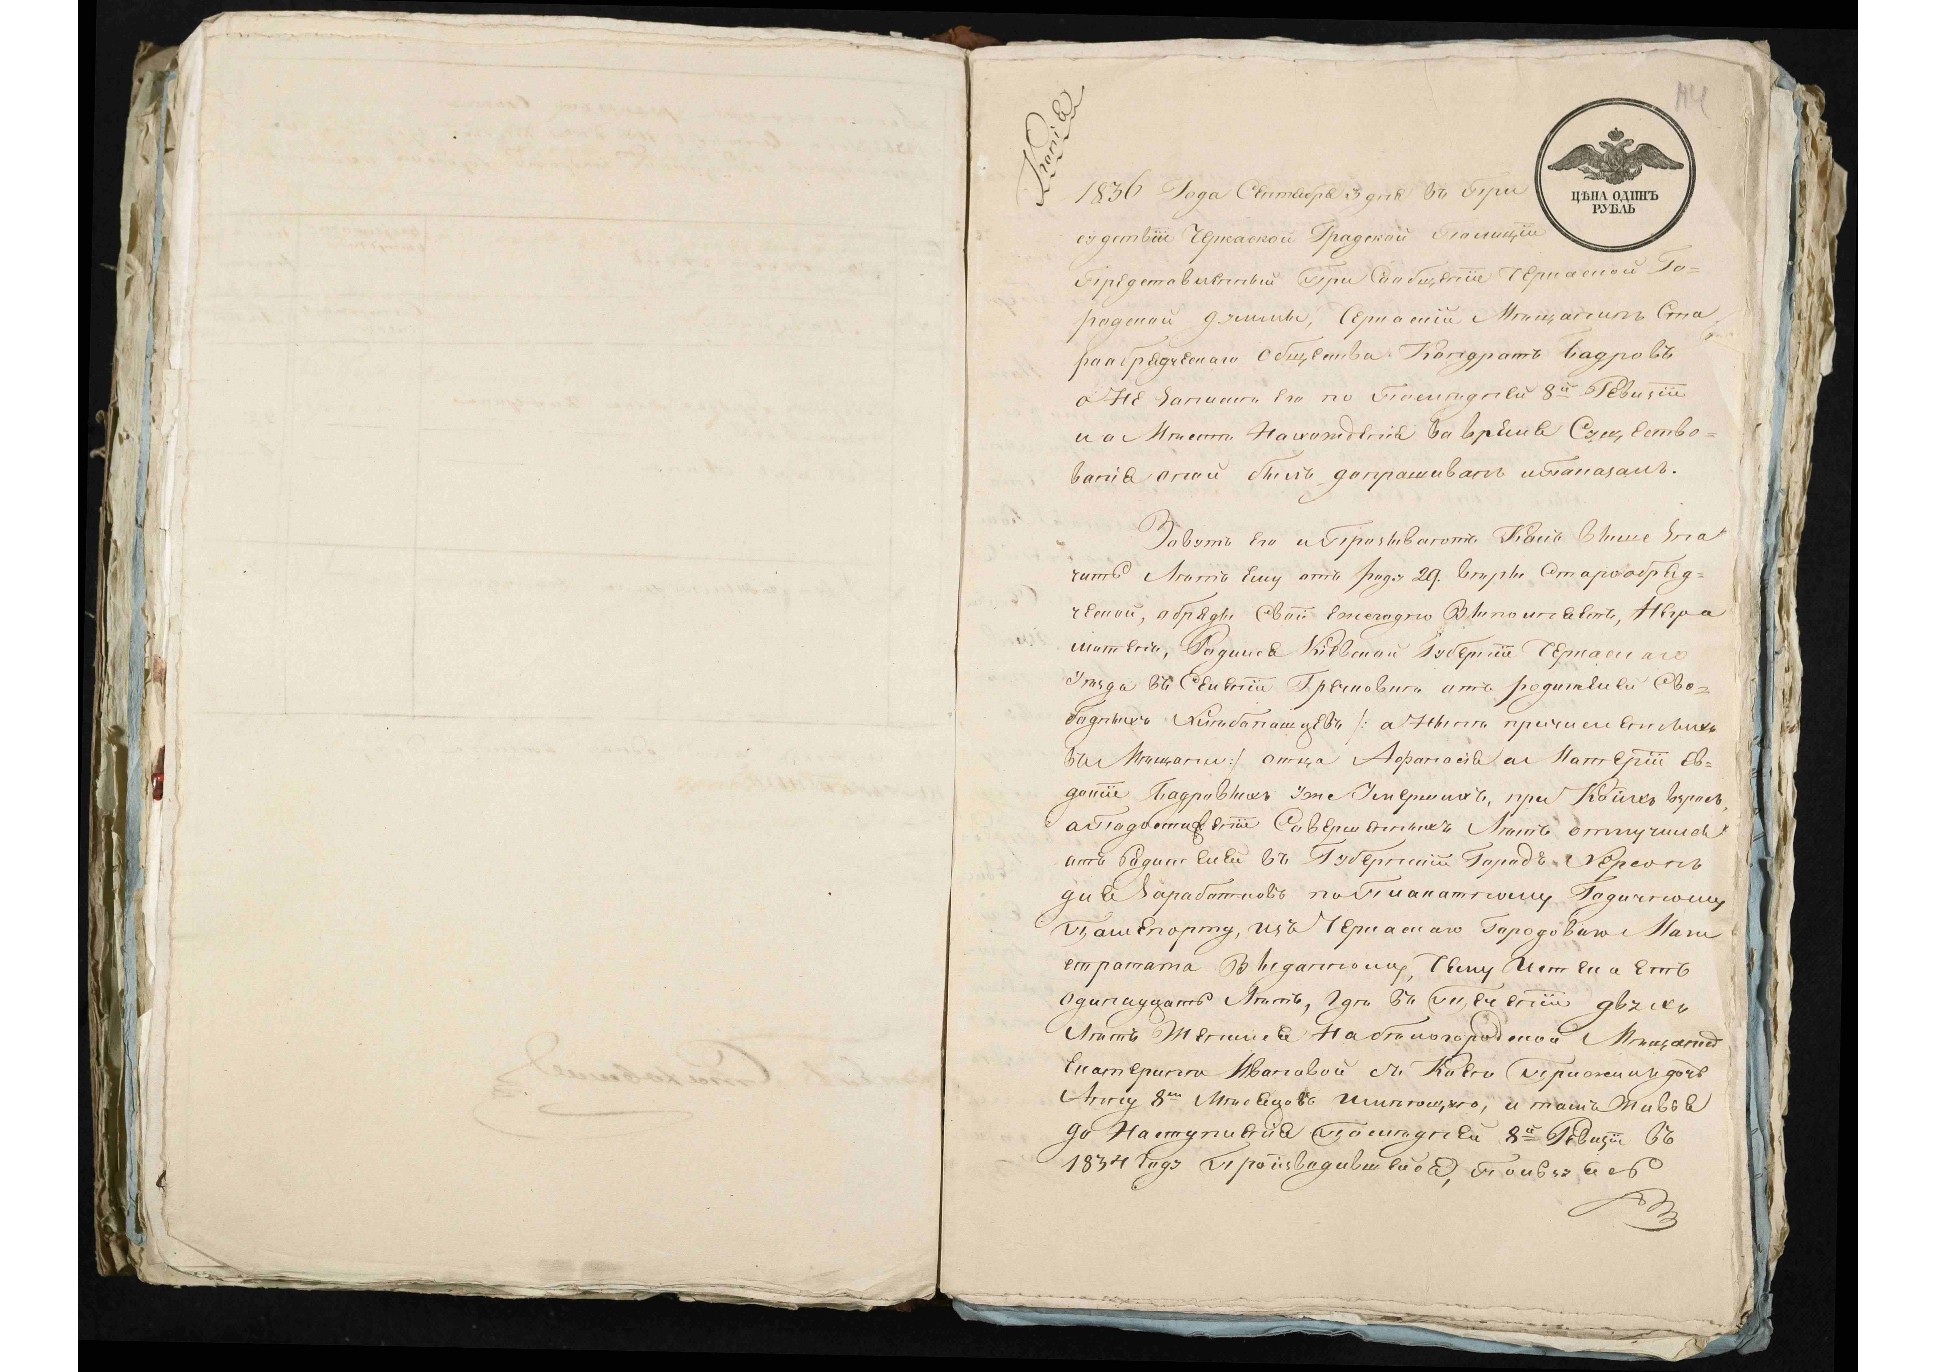 Копія
ЦѢНА ОДИНЪ
РУБЛЬ
1836 Года Сентября 3 дня въ При
судствіи Черкаской Градской Полиціи
Представленный При Сообщеніи Черкаской Го=
родской думмы, Черкаскій Мѣщанинъ Ста
рообрядческаго Общества Кондратъ Бадровъ
о Не Запискѣ его по Последней 8й Ревизіи
и о Мѣстѣ Нахожденія во время Существо=
ванія оной былъ допрашиванъ и Показалъ.
Зовутъ его и Прозываютъ Какъ выше Зна
читъ Лѣтъ ему отъ роду 29. веры Старообряд=
ческой, обряды Свои ежегодно Выполняетъ, Негра
мотенъ, Родился Кіевской Губерніи Черкаскаго
уезда въ Селеніи Гречковкѣ отъ родителей Сво=
бодныхъ Хлѣбопашцевъ /: а Нынѣ причисленныхъ
въ Мѣщане :/ отца Афанасія и Матери Ев=
докіи Бадровыхъ уже Умершихъ, при Коихъ взросъ,
а По достиженіи Совершенныхъ Лѣтъ отлучился
отъ Родителей въ Губернскій Городъ Херсонъ
для Заработковъ по Плакатному Годичному
Пашпорту, изъ Черкаскаго Городоваго Маги
страта Выданному, Чему Истекаетъ
одинадцать Лѣтъ, где въ теченіи двухъ
Лѣтъ Женился На белогородской Мѣщанкѣ
Екатеринѣ Ивановой съ Коею Прижилъ дочь
Анну 8ть Мѣсяцовъ имѣющую, и тамъ Живя
до Наступленія Последней 8й Ревизіи въ
1834 Году Производившейся,